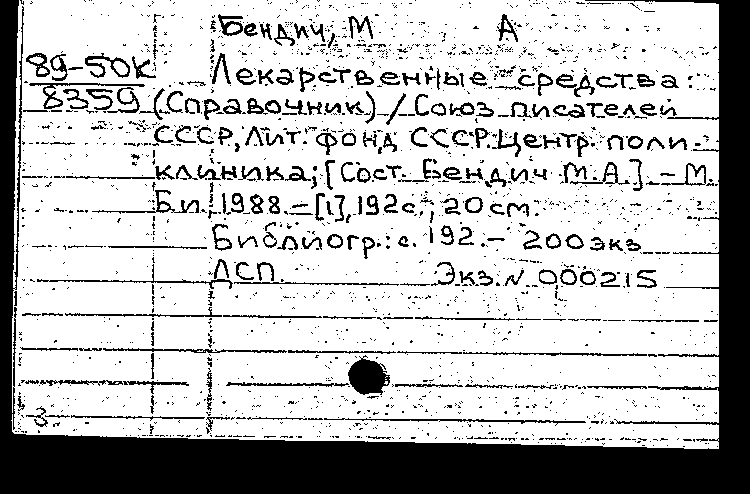 Бендич, М А
89-50К Лекарственные средства:
8359 (Справочник) / Союз писателей
СССР, Лит. фонд СССР. Центр. поли-
клиника; [Сост. Бендич М.А.]. - М.
Би, 1988. - [1], 192 с.; 20 см.
Библиогр.: с. 192. - 200 экз
ДСП. Экз. N 000215
3